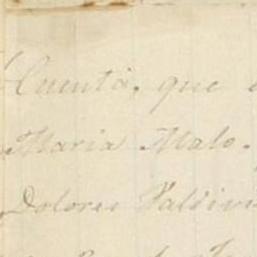 Cuenta, que
Maria Malo.
Dolores Valdivi